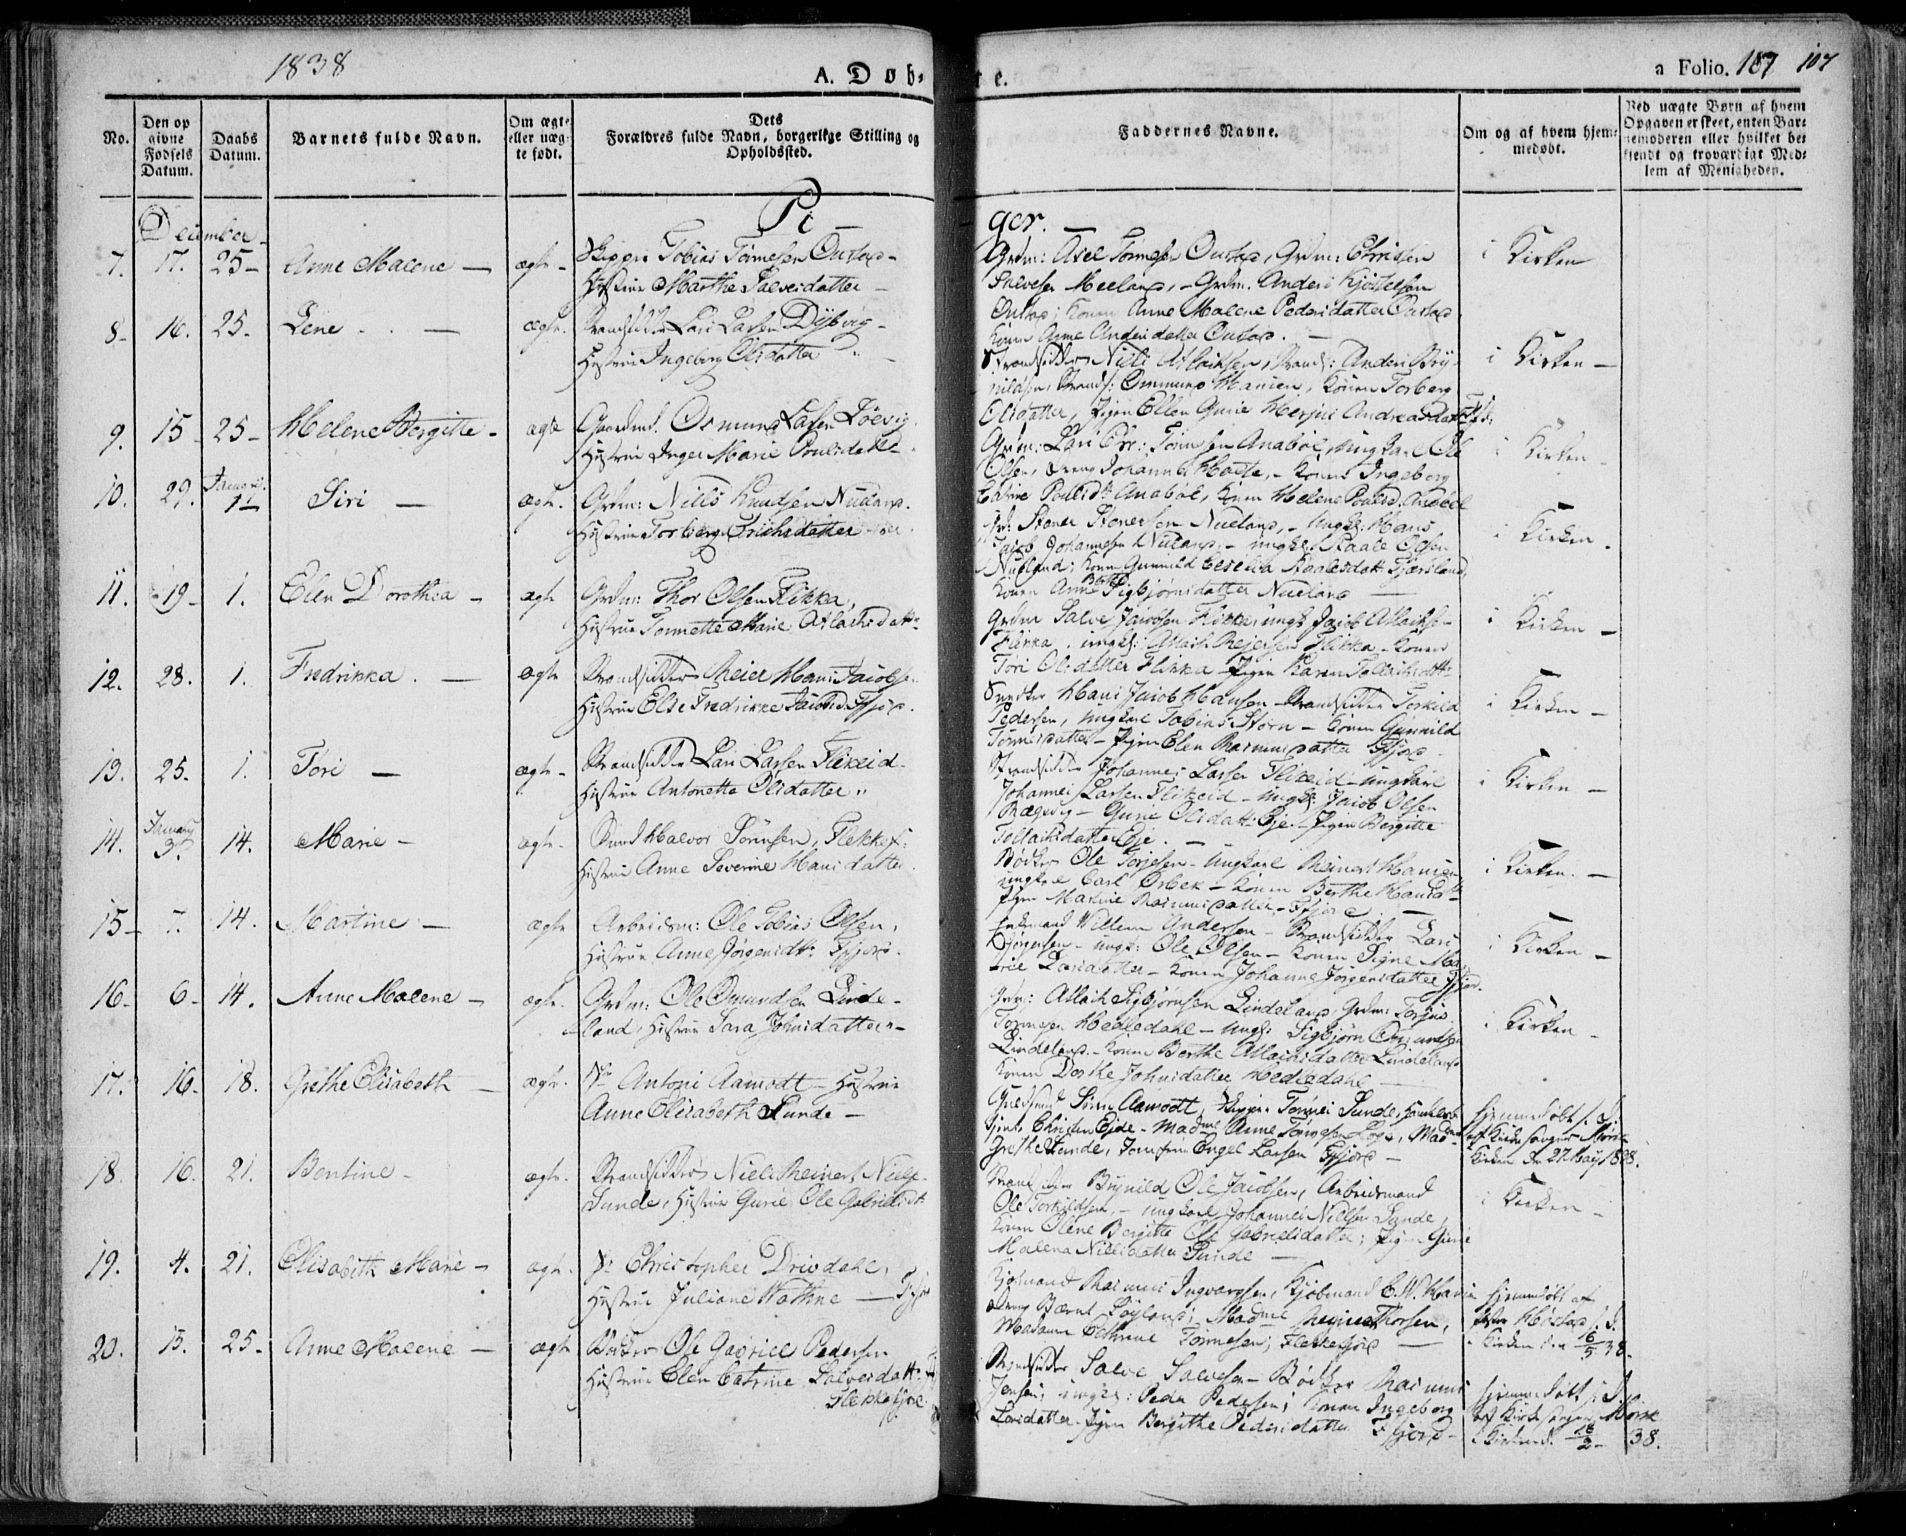 1838
A. Døb-
te.
a Folio. 107 107
No.
Den op
givne
Fødsels
Datum.
Daabs
Datum.
Barnets fulde Navn.
Om ægte
eller uæg-
te født.
Dets
Forældres fulde Navn, borgerlige Stilling og
Opholdssted.
Faddernes Navne.
Om og af hvem hjem-
medøbt.
Ved uægte Børn af hvem
Opgaven er skeet, enten Bar-
nemoderen eller hvilket be-
kjendt og troværdigt Med-
lem af Menigheden.
Pi
ger.
December
7. 17. 25 Anne Malene ægte
Skipper Tobias Tønnesen
Hustrue Marthe Salvesdatter
Grdm: Axel Tønnesen Grdm: Christen
Salvesen Meeland, Grdm. Anders Kjøstelsen
Konen Anne Malene Pedersdatter
Konen Anne Andersdatter
i Kirken
8. 16. 25. Lene ægte.
Strandsidder Lars Larsen Dyb
Hustrue Ingeborg Olsdatter
Strandsidder Niels Atlaksen, Strands: Anders
Strands: Ommund Hansen, Konen Torborg
Olsdatter, Pigen Ellen Gurie
i Kirken
9. 15 25 Helene Bergitte ægte
Gaardmd. Osmund Larsen Løevig
Hustrue Inger Marie Poulsdatt
Grdm: Lars Tønnesen Anabøl, Ungkarl Ole
Olsen, Dreng Johannes Konen Ingeborg
Catrine Poulsdt: Anabøl, Konen Helene Poulsd. Anabøl
i Kirken
10. 29. Januar 1 Siri ægte.
Grdm: Niels Knudsen Nueland.
Hustrue Torborg Erichsdatter
Stener Stenersen Nueland, Ungk: Hans
Jacob Johannesen Nueland, ungk: Staale Olsen
Nueland; Konen Gunnild Cecilia Staalesdatt: Fjærsland,
Konen Anne Berthe Sigbjørnsdatter Nueland
i Kirken.
11. 19 1. Elen Dorothea ægte
Grdm: Thor Olsen Flikka,
Hustrue Tonnette Marie Atlaksdatt
Grdm Salve Jacobsen Flikke, ungk Jacob Atlaks-
Flikka. ungk: Atlak Reiersen Flikka Konen
Tøri Olsdatter Flikka Pigen Karen Tollaksdatt:
i Kirken
12. 28. 1. Fredrikka. ægte
Strandsidder Reier Hans Jacobsen
Hustrue Else Fredrikke Jacobsd. Ffjord.
Snedker Hans Jacob Hansen Strandsidder Torkild
Pedersen, Ungkarl Tobias Konen Gunnild
Tønnesdatter Pigen Elen Rasmusdatter Ffjord
i Kirken
13. 25. 1. Tøri ægte
Strandsidder Lars Larsen Flikeid
Hustrue Antonette Olsdatter
Strandsidder Johannes Larsen Flikeid ungkarl
Johannes Larsen Flikeid Ungk: Jacob Olsen
Gurie Olsdatt: Eje. Pigen Bergitte
Tollaksdatter Eje.
i Kirken
14. January 3. 14. Marie ægte
Halvor Sørensen, Flekkef:
Hustrue Anne Severine Hansdatter
Bødker Ole Torjesen Ungkarl Reinert Hansen
ungkarl Carl Ørbek Konen Berthe Hansdatt
Pigen Martine Rasmusdatter Ffjord
i Kirken.
15 7. 14. Martine ægte
Arbeidsm: Ole Tobias Olsen,
Hustrue Anne Jørgensdt: Ffjord.
Willem Andersen Strandsidder Lars
Jørgensen Ungk: Ole Olsen Konen Signe Ma-
rie Larsdatter Konen Johanne Jørgensdatter Ffjord.
i Kirken
16 6 14. Anne Malene ægte.
Grdm: Ole Omundsen Linde-
land, Hustrue Sara Johnsdatter
Grdm: Atlack Sigbjørnsen Lindeland, Grdm: Torjus
Tønnesen Hedledahl Ungk: Sigbjørn Omundsen
Lindeland. Konen Berthe Atlaksdatter Lindeland
Konen Dorthe Johnsdatter Hedledahl
i Kirken
17. 16. 18. Grethe Elisabeth ægte.
Sr Antoni Aamodt Hustrue
Anne Elisabeth Sunde
Guldsmed Søren Aamodt, Skipper Tønnes Sunde,
Christen Ejde Madme Anne Tønnesen Mad
Grethe Sunde, Jomfrue Engel Larsen Ffjord
hjemmedøbt
af Kirkesanger Mørk
Kirken den 27 May 1838.
18. 16. 21. Bentine ægte.
Strandsidder Niels Reinert Niels
Sunde, Hustrue Gurie Ole Gabrielsdt
Brynild Ole Jacobsen, Arbeidsmand
Ole Torkildsen, ungkarl Johannes Nielsen Sunde,
Konen Olene Bergitte Ole Gabrielsdatter; Pigen Gurie
Malena Nielsdatter Sunde
i Kirken
19. 4. 21. Elisabeth Marie ægte.
Sr Christopher Drivdahl,
Hustrue Juliane Wathne Ffjord
Kjøbmand Rasmus Ingvarsen, Kjøbmand
Dreng Bernt Madme Thorsen,
Madame Cathrine Tønnesen, Flekkefjord
hjemmedøbt af
i Kirken den 6/5 38.
20. 15. 25. Anne Malene ægte
Bødker Ole Gabriel Pedersen
Hustrue Elen Catrine Salvesdatt.
Flekkefjord.
Strandsidder Salve Salvesen Bødker Rasmus
Jensen, ungk: Peder Pedersen; Konen Ingeborg
Larsdatter Pigen Bergithe Pedersdatter Ffjord
hjemmedøbt
af Kirkesanger Mørk
i Kirken d. 18/2 38.